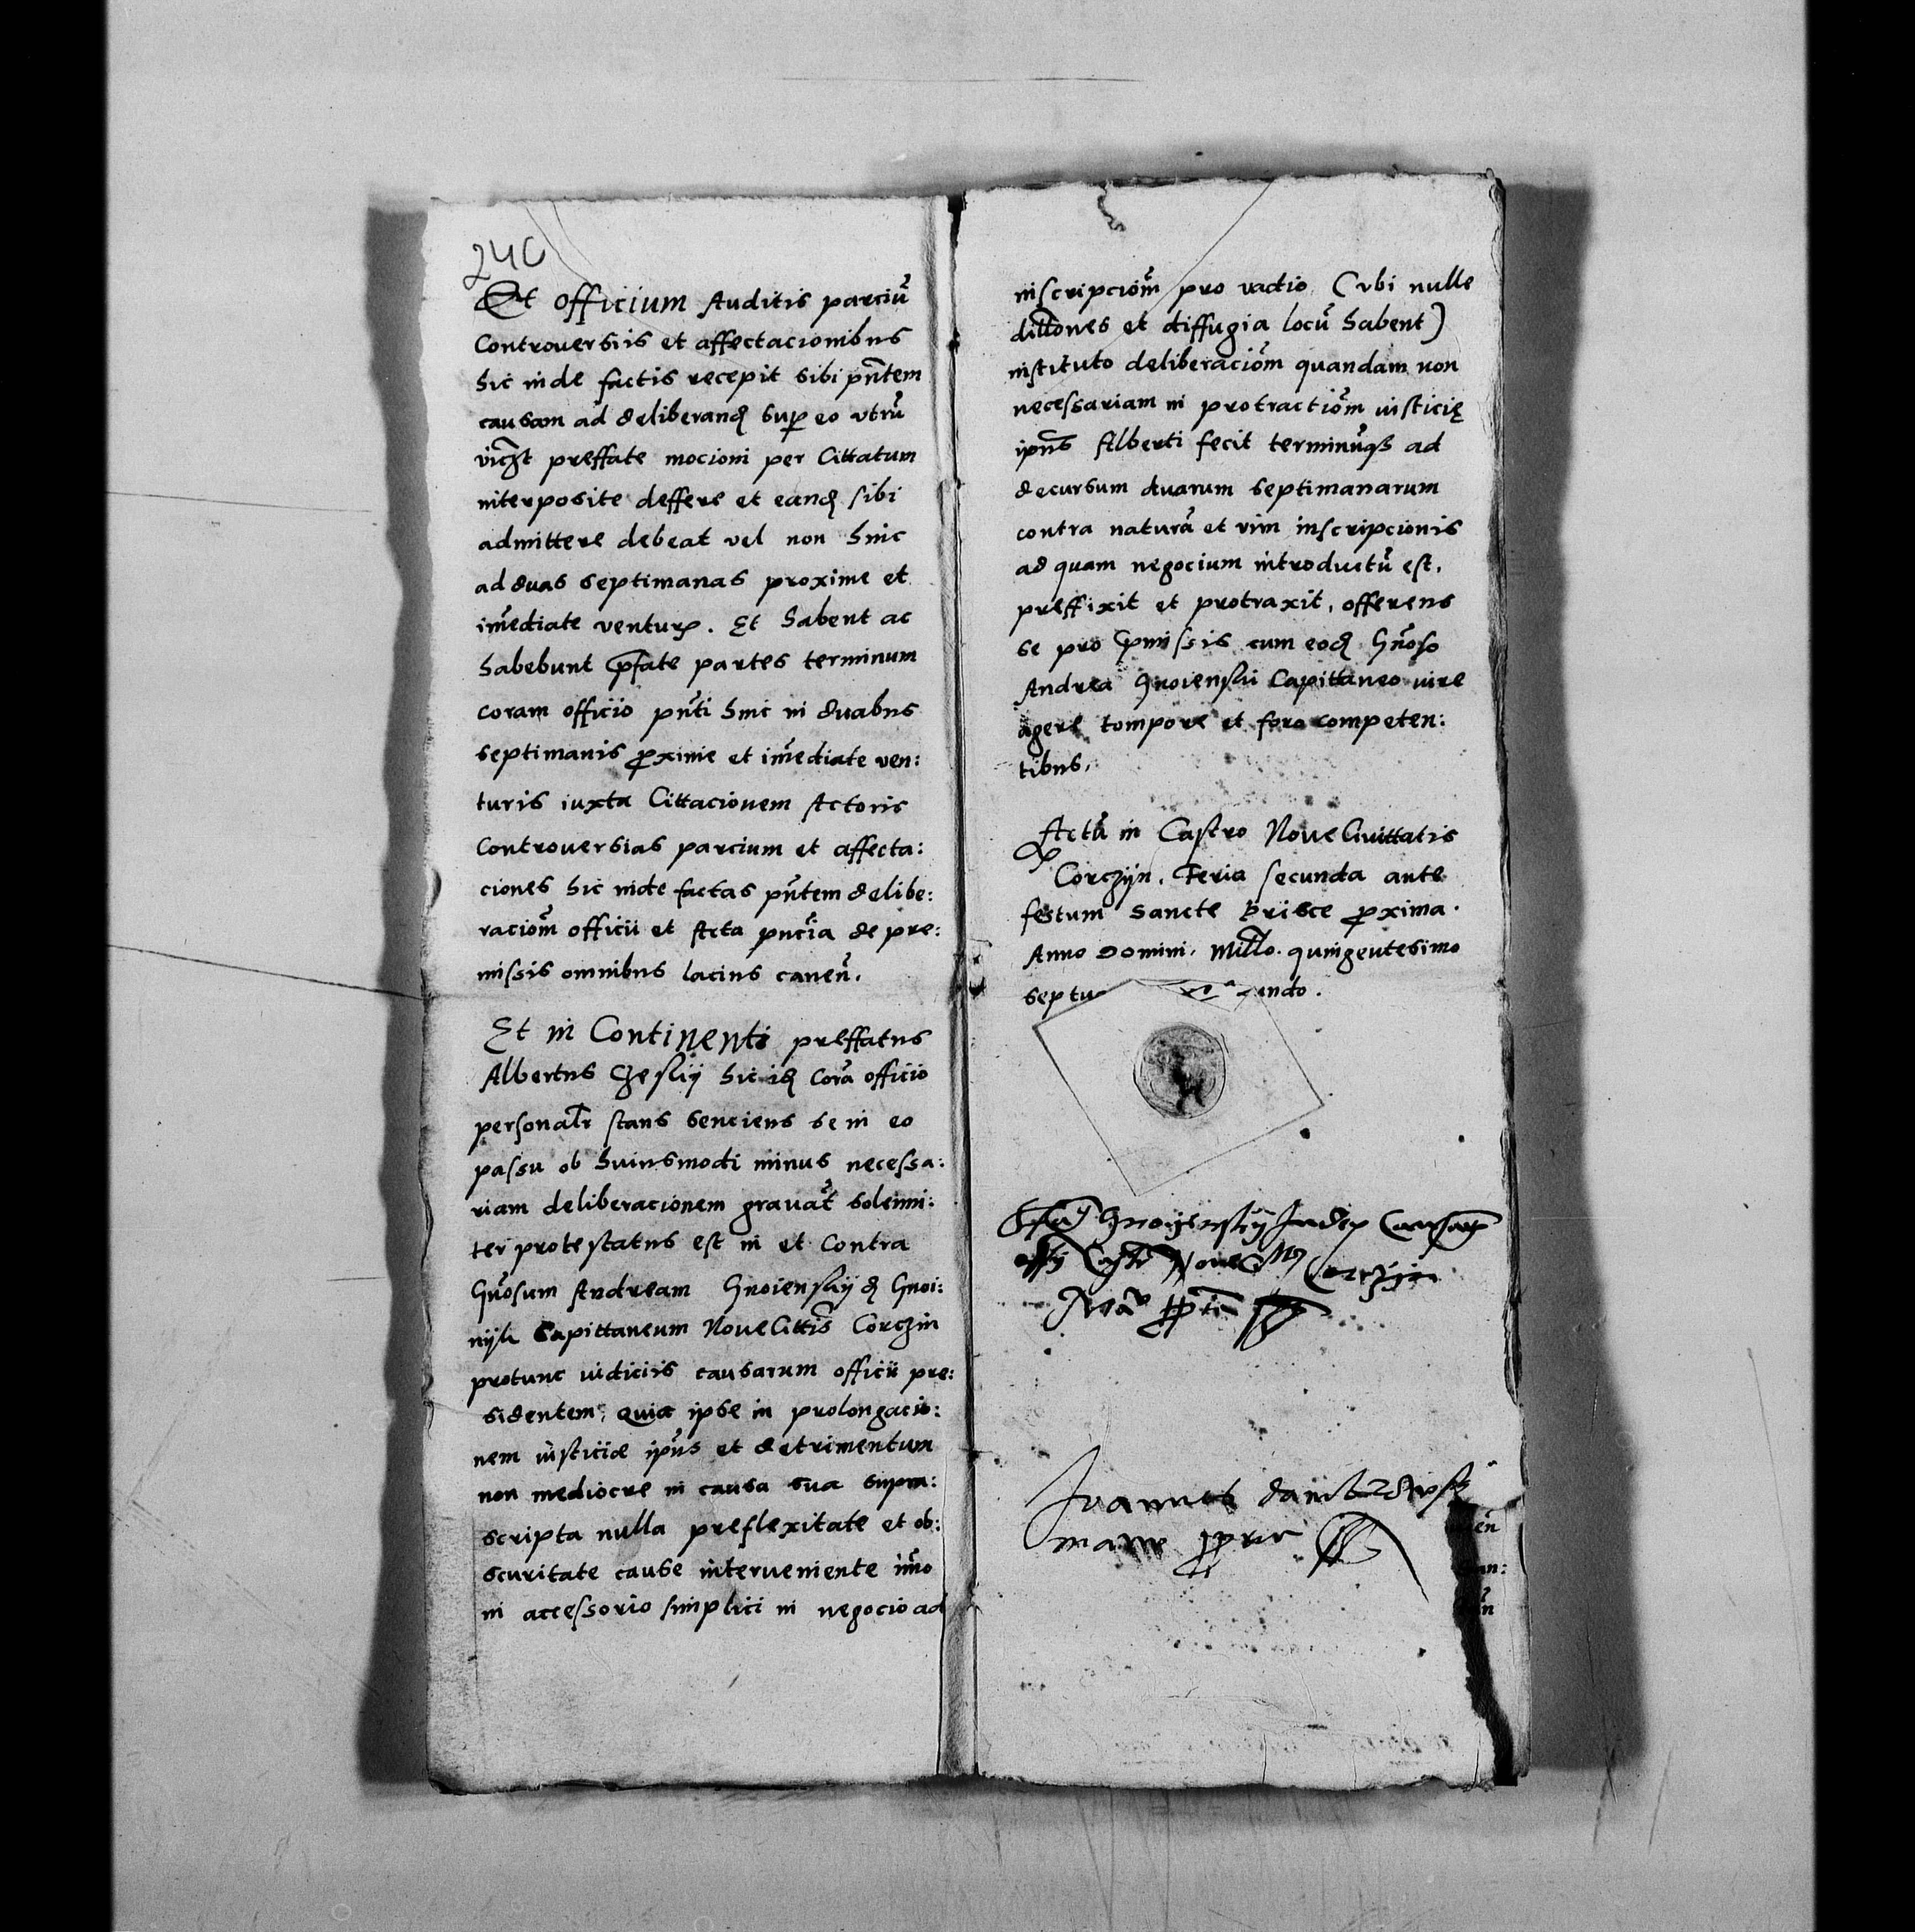 240
Et officium Auditis parciū
Controuersiis et affectacionibus
hic inde factis recepit sibi pn̄tem
causam ad deliberand sup eo vtrū
preffate mocioni per Cittatum
interposite deffere et eand sibi
admittere debeat vel non hinc
ad duas septimanas proxime et
im̄ediate ventur. Et habent ac
habebunt p̄fate partes terminum
coram officio pn̄ti hinc in duabus
septimanis proxime et im̄ediate ven:
turis iuxta Cittacionem Actoris
Controuersias parcium et affecta:
ciones hic inde factas pn̄tem delibe:
raciōm officii et Acta pn̄cia de pre:
missis omnibus lacius canen̄.
Et in Continenti preffatus
Albertus Czeskij hic id corā officio
personalr stans senciens se in eo
passu ob huiusmodi minus necessa:
riam deliberacionem gravat̄ solenni:
ter protestatus est in et contra
Gn̄osum Andream Gnoienskij d Gnoi:
nijk Capittaneum Noue Cittis Corczin
protunc iudiciis causarum officii pre:
sidentem, quia ipse in prolongacio:
nem iusticiæ ipīus et detrimentum
non mediocre in causa sua supra:
scripta nulla preflexitate et ob:
scuritate cause interueniente im̄o
in accessorio simplici in negocio ad
inscripciōm pro vadio (vbi nulle
dillones et diffugia locū habent)
instituto deliberaciōm quandam non
necessariam in protractiōm iusticię
ipīus Alberti fecit terminūq3 ad
decursum duarum septimanarum
contra naturā et vim inscripcionis
ad quam negocium introductū est,
preffixit et protraxit, offerens
se pro p̄missis cum eod Gn̄oso
Andrea Gnoienskii Capittaneo iure
agere tempore et foro competen:
tibus.
Actū in Castro Noue Ciuittatis
Corczijn. Feria secunda ante
festum sancte Prisce proxima.
Anno Domini. Millo. quingentesimo
septu undo.
Gnoijenskij Judex Causarum
Noue Corczijn
Joannes
manu ppria